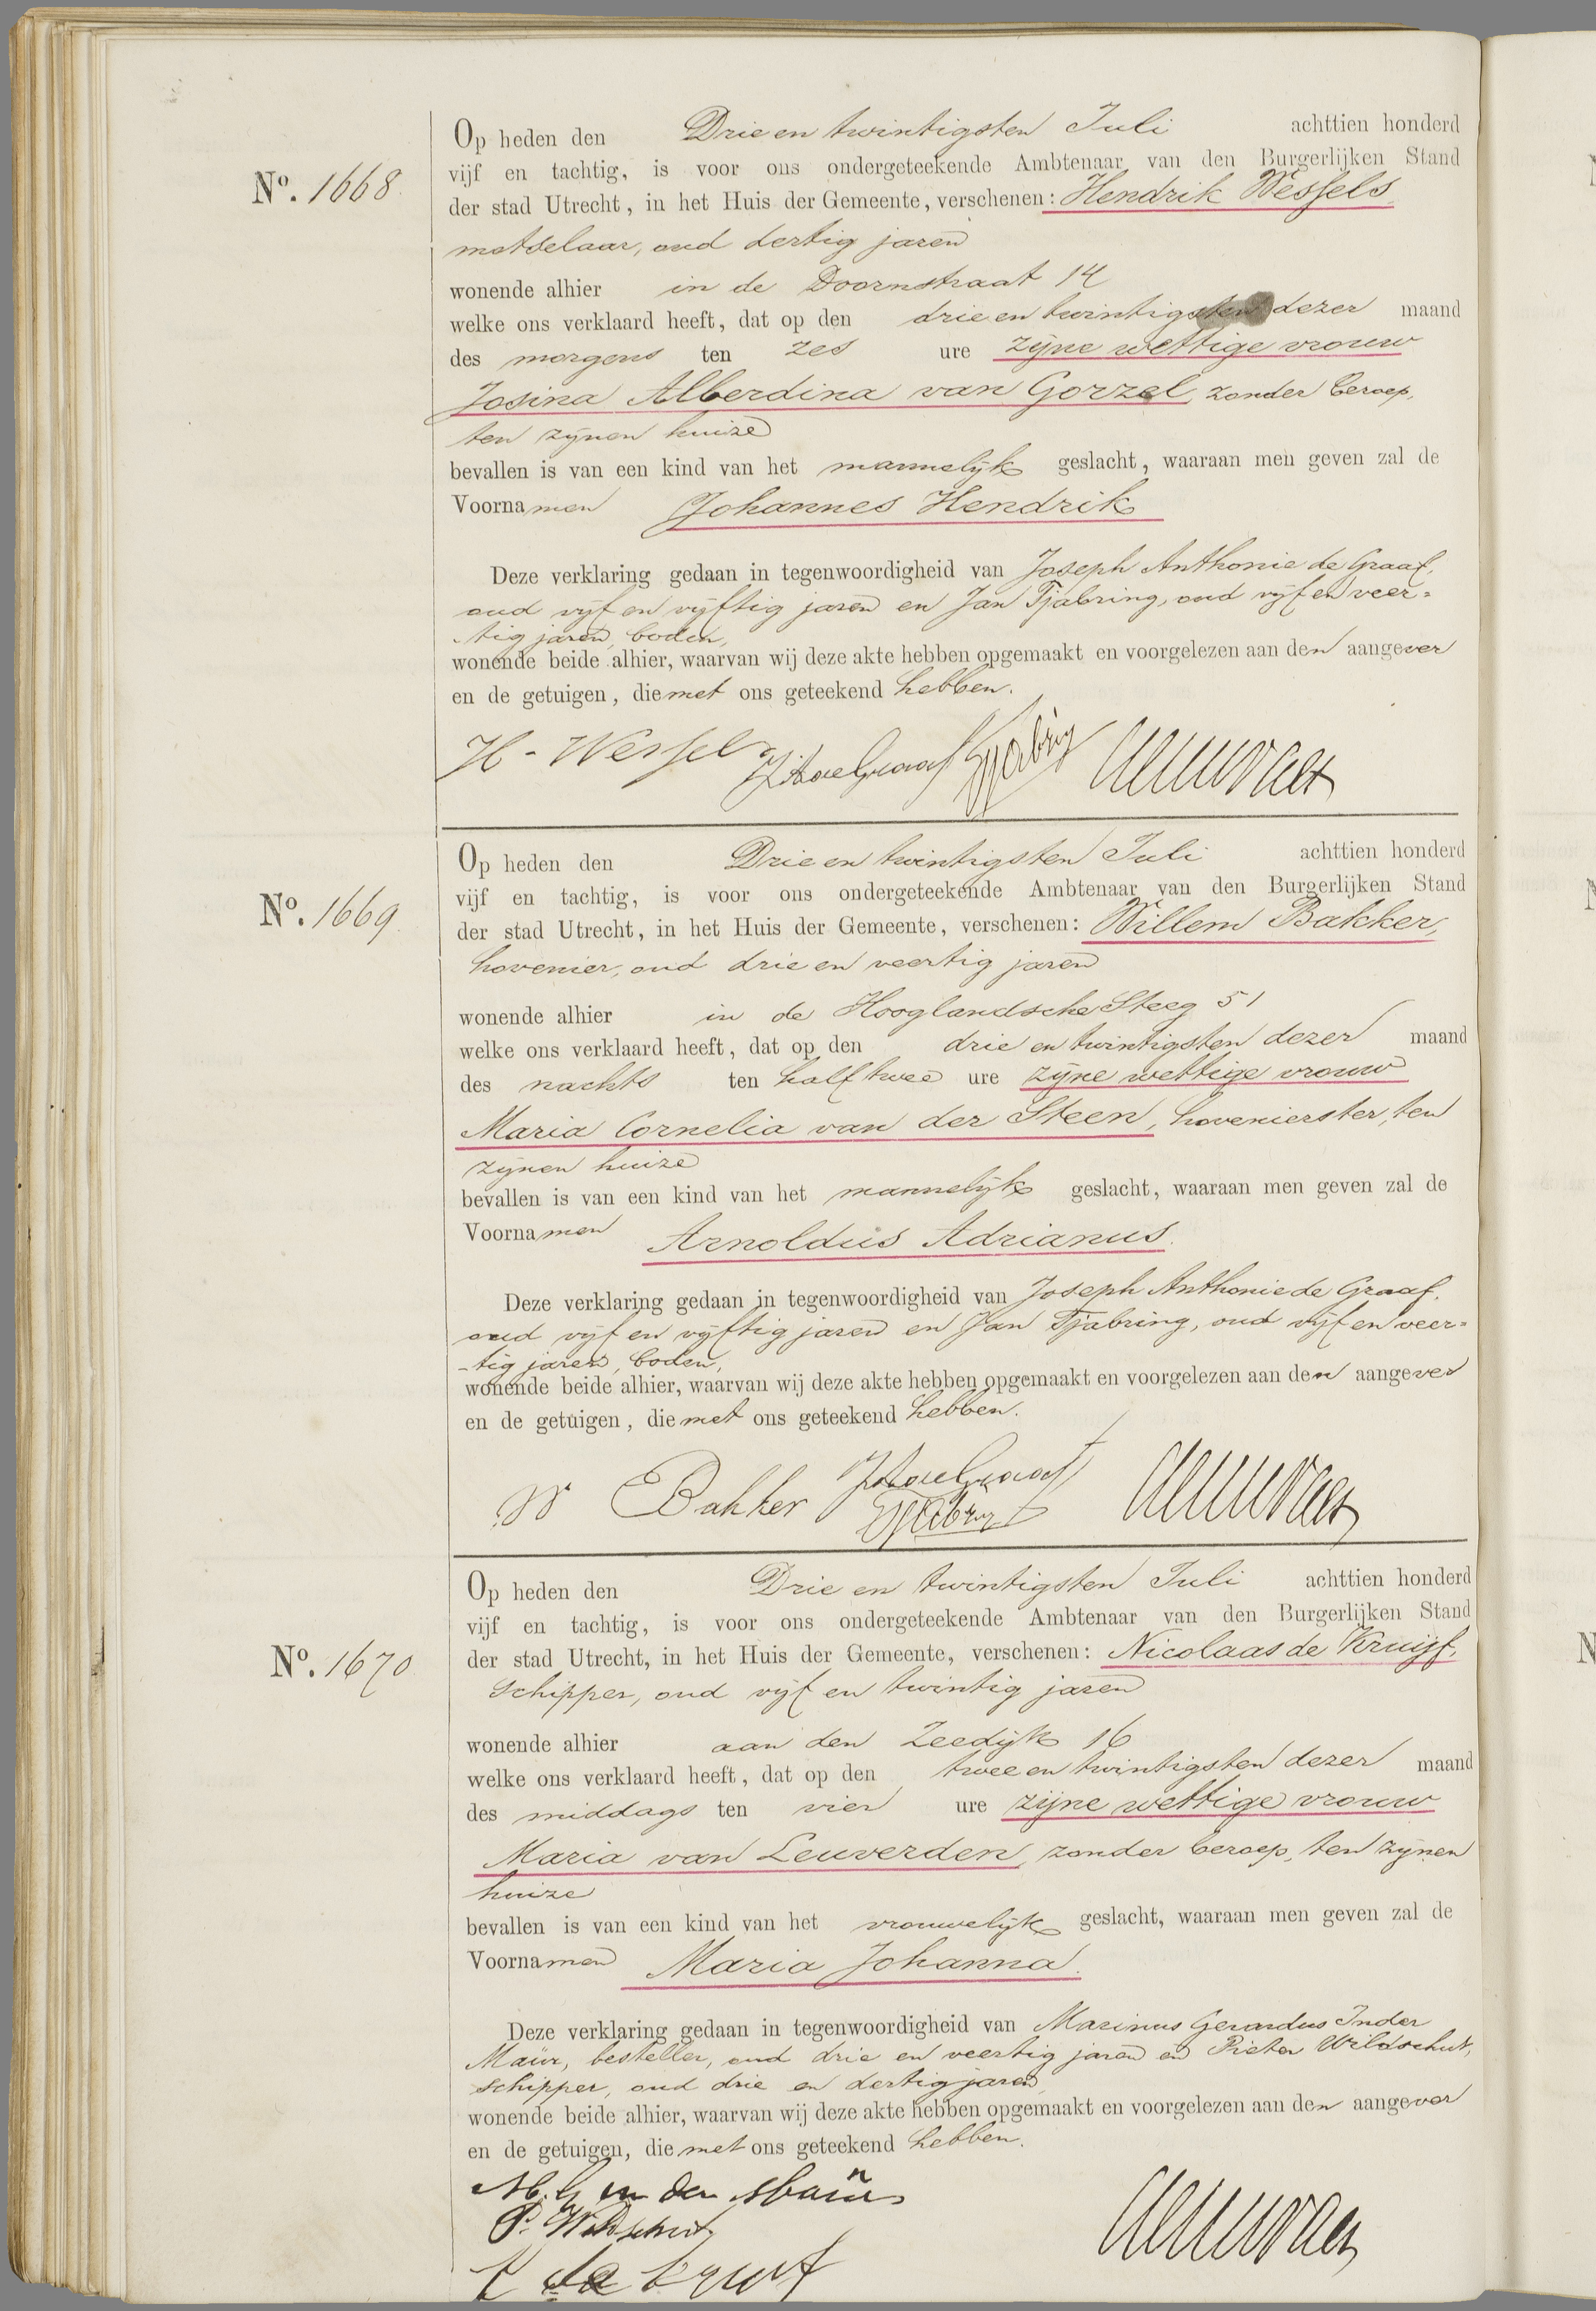 Op heden den Drie en twintigsten Juli achttien honderd
No. 1668
vijf en tachtig, is voor ons ondergeteekende Ambtenaar van den Burgerlijken Stand
der stad Utrecht, in het Huis der Gemeente, verschenen: Hendrik Wessels
metselaar, oud dertig jaren
wonende alhier in de Doornstraat 14
welke ons verklaard heeft, dat op den drie en twintigsten dezer maand
des morgens ten zes ure zijne wettige vrouw
Josina Alberdina van Gorzel, zonder beroep,
ten zijnen huize
bevallen is van een kind van het mannelijk geslacht, waaraan men geven zal de
Voornamen Johannes Hendrik
Deze verklaring gedaan in tegenwoordigheid van Joseph Anthonie de Graaf,
oud vijf en vijftig jaren en Jan Tjabring, oud vijf en veer-
-tig jaren, boden,
wonende beide alhier, waarvan wij deze akte hebben opgemaakt en voorgelezen aan den aangever
en de getuigen, die met ons geteekend hebben.
H - Wessels JAdeGraaf JTjabring
Op heden den Drie en twintigsten Juli achttien honderd
No. 1669
vijf en tachtig, is voor ons ondergeteekende Ambtenaar van den Burgerlijken Stand
der stad Utrecht, in het Huis der Gemeente, verschenen: Willem Bakker,
hovenier, oud drie en veertig jaren
wonende alhier in de Hooglandsche Steeg 51
welke ons verklaard heeft, dat op den drie en twintigsten dezer maand
des nachts ten half twee ure zijne wettige vrouw
Maria Cornelia van der Steen, hovenierster, ten
zijnen huize
bevallen is van een kind van het mannelijk geslacht, waaraan men geven zal de
Voornamen Arnoldus Adrianus.
Deze verklaring gedaan in tegenwoordigheid van Joseph Anthonie de Graaf,
oud vijf en vijftig jaren en Jan Tjabring, oud vijf en veer-
-tig jaren, boden,
wonende beide alhier, waarvan wij deze akte hebben opgemaakt en voorgelezen aan den aangever
en de getuigen, die met ons geteekend hebben.
W Bakker JAdeGraaf
JTjabring
Op heden den Drie en twintigsten Juli achttien honderd
vijf en tachtig, is voor ons ondergeteekende Ambtenaar van den Burgerlijken Stand
No. 1670
der stad Utrecht, in het Huis der Gemeente, verschenen: Nicolaas de Kruijf,
schipper, oud vijf en twintig jaren
wonende alhier aan den Zeedijk 16
welke ons verklaard heeft, dat op den twee en twintigsten dezer maand
des middags ten vier ure zijne wettige vrouw
Maria van Leuverden, zonder beroep, ten zijnen
huize
bevallen is van een kind van het vrouwelijk geslacht, waaraan men geven zal de
Voornamen Maria Johanna.
Deze verklaring gedaan in tegenwoordigheid van Marinus Gerardus Inder
Maür, besteller, oud drie en veertig jaren en Pieter Wildschut,
schipper, oud drie en dertig jaren,
wonende beide alhier, waarvan wij deze akte hebben opgemaakt en voorgelezen aan den aangever
en de getuigen, die met ons geteekend hebben.
M. G in der Maür
P. Wildschut
de Kruif